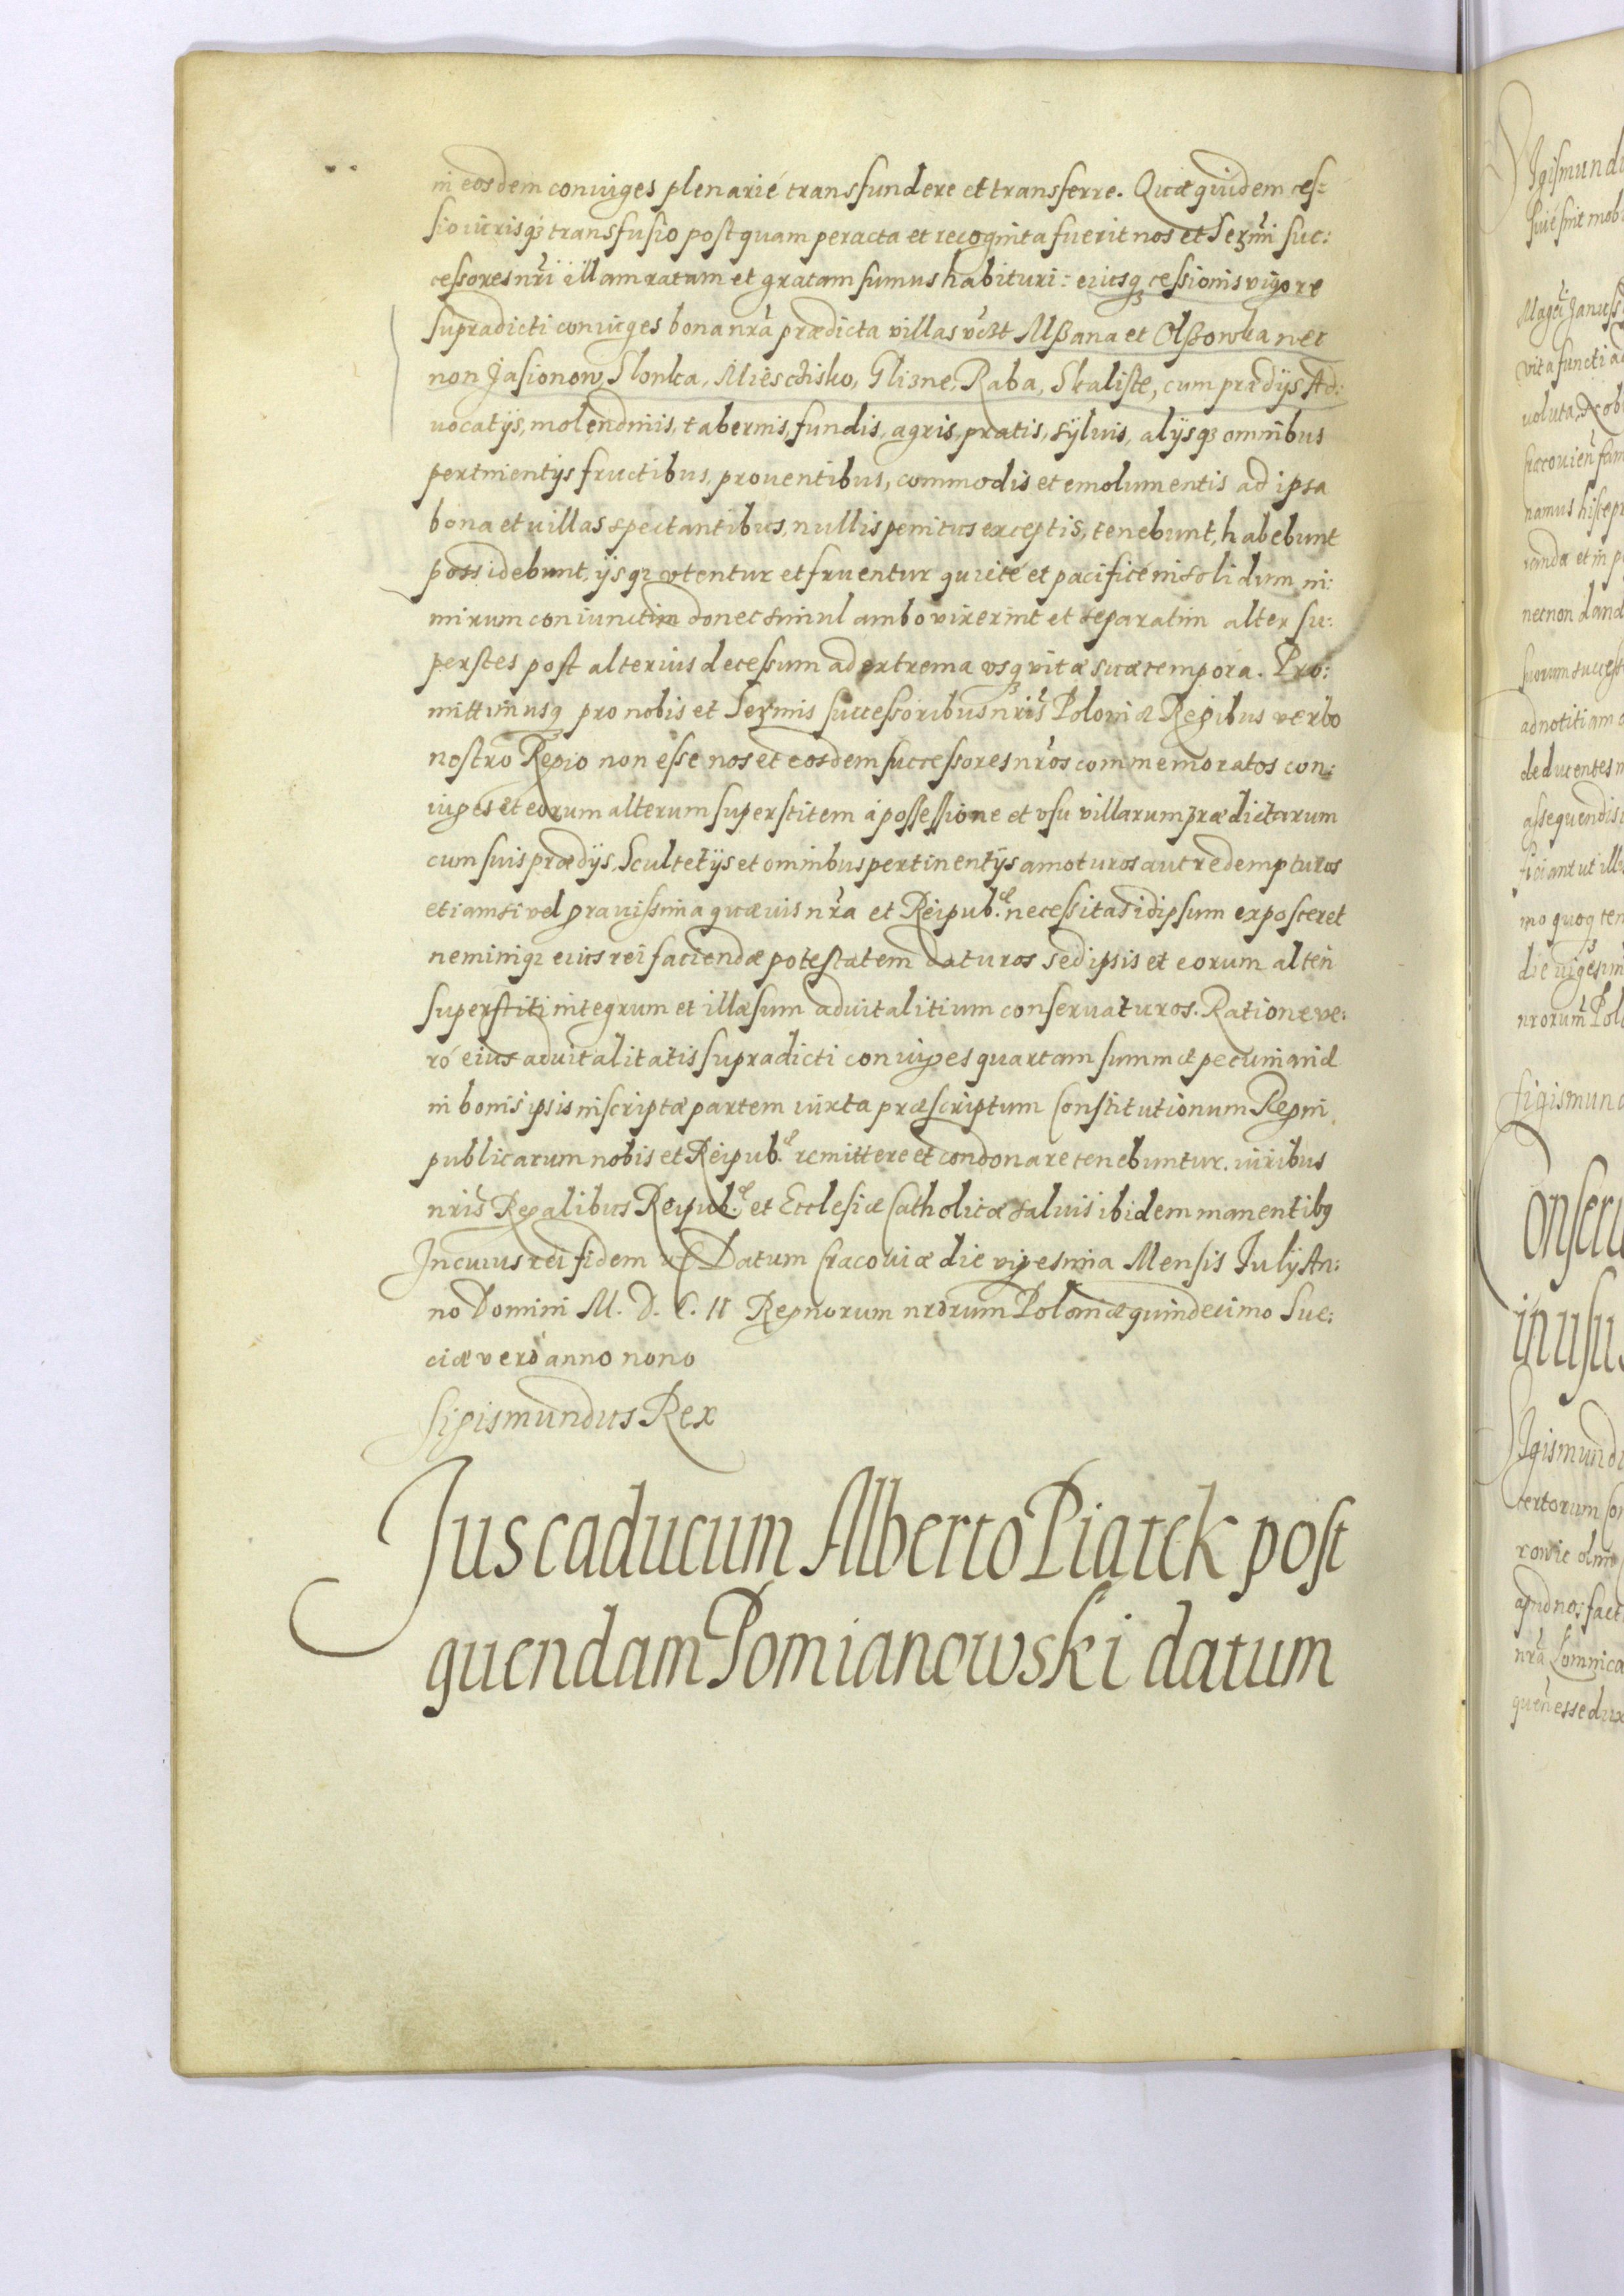 in eosdem coniuges plenarié transfundere et transferre. Quæ quidem ces=
sio iurisq₃ transfusio postquam peracta et recognita fuerit nos et Serm̄i suc:
cessores nr̄i illam ratam et gratam sumus habituri: eiusq₃ cessionis vigore
supradicti coniuges bona nr̄a prædicta villas vczt Mßana et Olßowka nec
non Jasionow, Slonka, Mieschisko, Glizne, Raba, Skaliste, cum prædijs Ad:
uocatijs, molendinis, tabernis, fundis, agris, pratis, syluis, alijsq₃ omnibus
pertinentijs fructibus, prouentibus, commodis et emolumentis ad ipsa
bona et uillas spectantibus, nullis penitus exceptis, tenebunt, habebunt
possidebunt, ijsq₃ vtentur et fruentur quieté et pacificé in solidum, ni:
mirum coniunctim donec simul ambo vixerint et separatim alter su:
perstes post alterius decessum ad extrema vsq₃ vitæ suæ tempora. Pro:
mittimusq₃ pro nobis et Sermis successoribus nr̄is Poloniæ Regibus verbo
nostro Regio non esse nos et eosdem successores nr̄os commemoratos con:
iuges et eorum alterum superstitem á possessione et vsu villarum prædictarum
cum suis prædijs, Scultetijs et omnibus pertinentijs amoturos aut redempturos
etiamsi vel grauissima quæuis nr̄a et Reipub.æ necessitas idipsum exposceret
neminiq₃ eius rei faciendæ potestatem daturos sed ipsis et eorum alteri
superstiti integrum et illæsum aduitalitium conseruaturos. Ratione ve:
ró eius aduitalitatis supradicti coniuges quartam summæ pecuniariæ
in bonis ipsis inscriptæ partem iuxta præscriptum Constitutionum Regni
publicarum nobis et Reipub.æ remittere et condonare tenebuntur. iuribus
nr̄is Regalibus Reipub.æ et Ecclesiæ Catholicæ saluis ibidem manentibq
In cuius rei fidem &c Datum Cracouiæ die vigesima Mensis Iulij An:
no Domini M. D. C. II Regnorum nrōrum Poloniæ quindecimo Sue:
ciæ veró anno nono
Sigismundus Rex
Jus caducum Alberto Piatek post
quendam Pomianowski datum